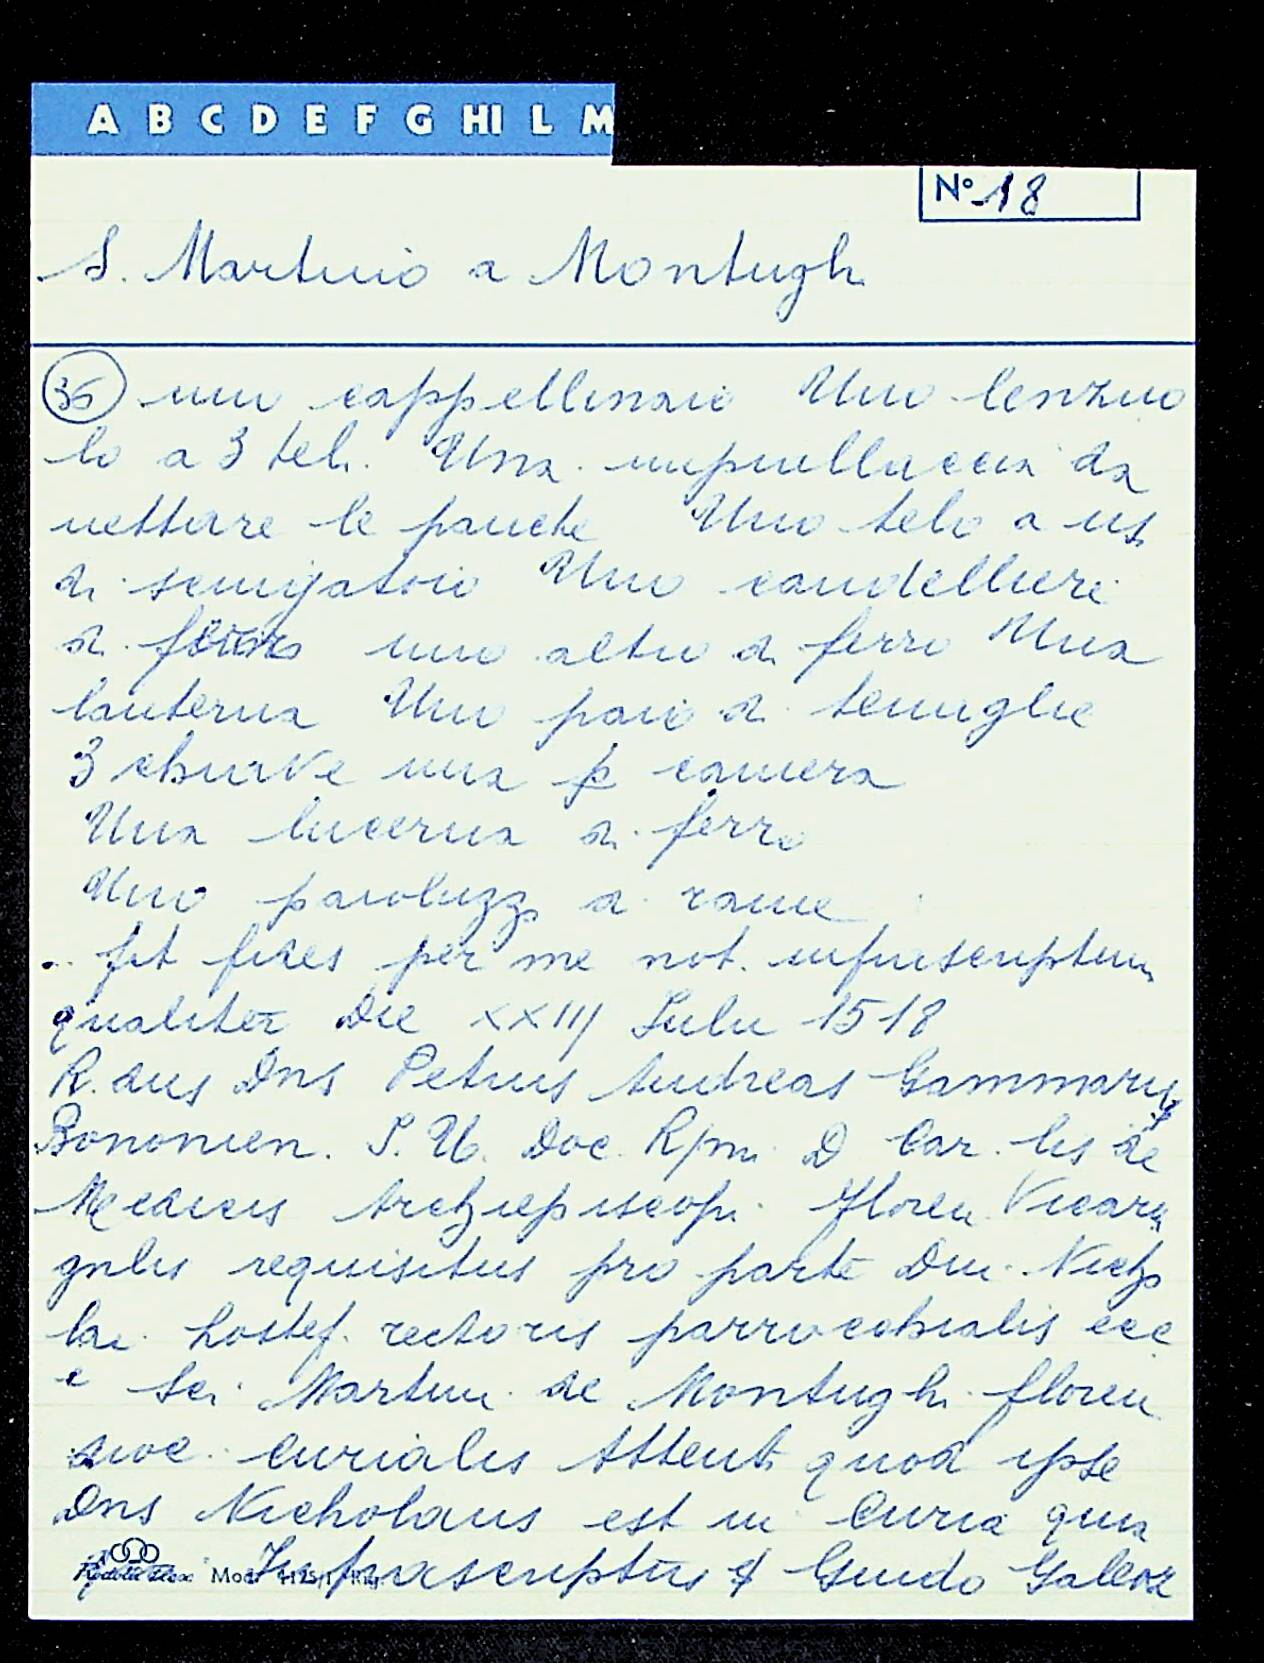 A B C D E F G HI L M
No. 18
S. Martino a Montughi
36 uno cappellinaio Uno lenzuo
lo a 3 teli. Una da
nettare le panche Uno telo a us
di sciugatoio Uno candelliere
di uno altro di ferro Una
lanterna Uno paio di tenaglie
3 chiave una p camera
Una lucerna di ferro
Uno paioluzzo di rame
fit fides per me not. infrascriptum
qualiter Die XXIII Iulii 1518
R. dus Dns Petrus Andreas Gammarus
Bononien. I. U. Doc. Rpmi D Car. lis de
Medicis Archiepiscopi Floren Vicarius
gnlis requisitus pro parte Dni. Nicho
lai rectoris parrocchialis ecc
e Sci Martini de Montughi floren
dioc. Curialis Attento quod ipse
Dns Nicholaus est in Curia quia
Infrascriptus & Guido